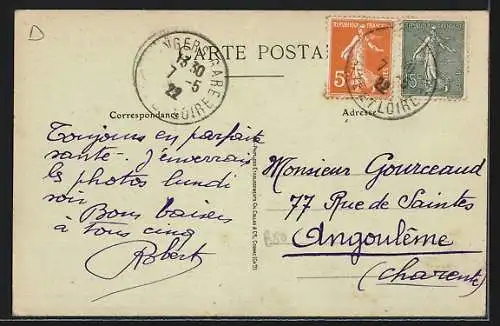 D
CARTE POSTALE
ANGERS-GARE
13 30
7 -5
22
LOIRE
5
15
7
22
LOIRE
Correspondance
Adresse
Toujours en parfaite
santé. J'enverrai
les photos lundi
soir
Bons baisers
à tous cinq
Robert
Monsieur Gourceaud
77 Rue de Saintes
Angoulême
(Charente)